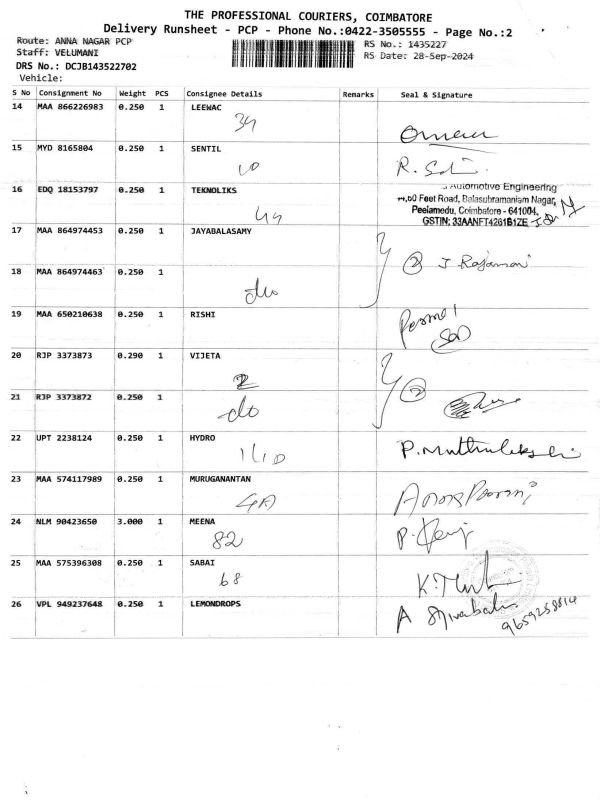 THE PROFESSIONAL COURIERS, COIMBATORE
Delivery Runsheet - PCP - Phone No.:0422-3505555 - Page No.:2
Route: ANNA NAGAR PCP
RS No.: 1435227
Staff: VELUMANI
RS Date: 28-Sep-2024
DRS No.: DCJB143522702
Vehicle:
S No Consignment No Weight PCS Consignee Details Remarks Seal & Signature
14 MAA 866226983 0.250 1 LEEWAC
15 MYD 8165804 0.250 1 SENTIL
16 EDQ 18153797 0.250 1 TEKNOLIKS
Automotive Engineering
Feet Road, Balasubramaniam Nagar,
Peelamedu, Coimbatore - 641004.
GSTIN: 33AANFT4261B1ZE
17 MAA 864974453 0.250 1 JAYABALASAMY
2 J Rajamani
18 MAA 864974463 0.250 1
do
19 MAA 650210638 0.250 1 RISHI
20 RJP 3373873 0.290 1 VIJETA
2
21 RJP 3373872 0.250 1
do
22 UPT 2238124 0.250 1 HYDRO
P. Muthulakshmi
23 MAA 574117989 0.250 1 MURUGANANTAN
4A
24 NLM 90423650 3.000 1 MEENA
82
25 MAA 575396308 0.250 1 SABAI
68
26 VPL 949237648 0.250 1 LEMONDROPS
A